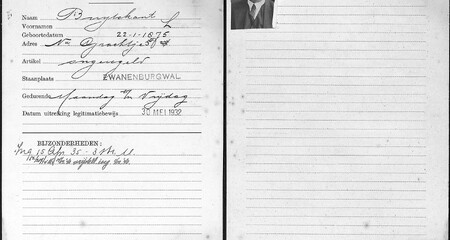 Naam Buytekant
Voornamen L
Geboortedatum 22-1-1875
Adres Nw Grachtje
Artikel ongeregeld
Staanplaats ZWANENBURGWAL
Gedurende Maandag t/m Vrijdag
Datum uitreiking legitimatiebewijs 30 MEI 1932
BIJZONDERHEDEN:
Ing 15 Apr 35 -